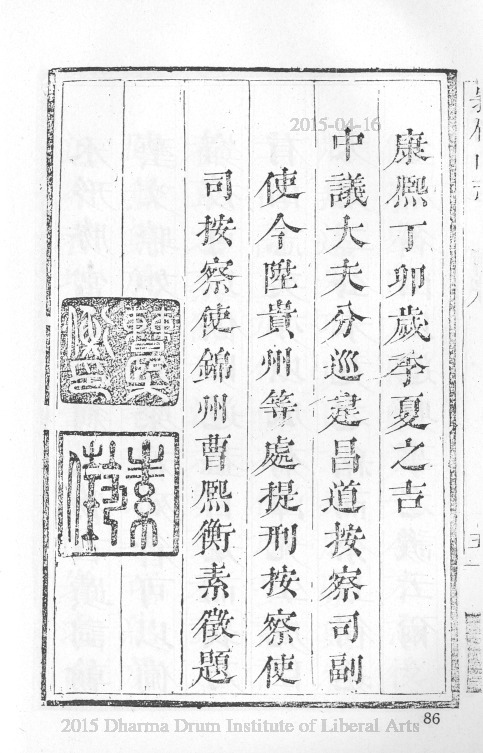 康熙丁卯歲季夏之吉
中議大夫分巡建昌道按察司副
使今陞貴州等處提刑按察使
司按察使錦州曹熙衡素徵題
素徵
2015-04-16
86
2015 Dharma Drum Institute of Liberal Arts